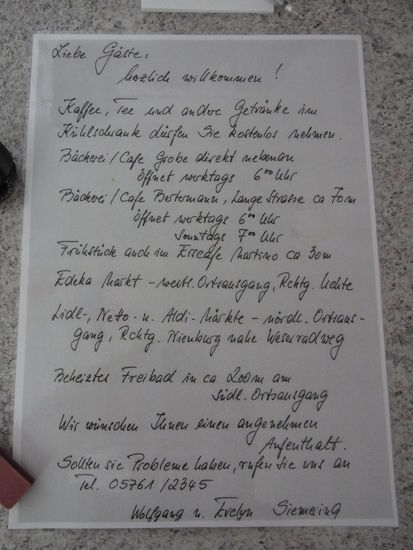 Liebe Gäste,
herzlich willkommen!
Kaffee, Tee und andere Getränke im
Kühlschrank dürfen Sie kostenlos nehmen.
Bäckerei/Cafe Grobe direkt nebenan
öffnet werktags 6⁰⁰ Uhr
Bäckerei/Cafe Bertermann, Lange Strasse ca 70m
öffnet werktags 6⁰⁰ Uhr
Sonntags 7⁰⁰ Uhr
Frühstück auch im Eiscafe Martino ca 30m
Edeka Markt - westl. Ortsausgang, Rchtg. Uchte
Lidl-, Netto- u. Aldi-Märkte - nördl. Ortsaus-
gang, Rchtg. Nienburg nahe Weserradweg
Beheiztes Freibad in ca 200m am
südl. Ortsausgang
Wir wünschen Ihnen einen angenehmen
Aufenthalt.
Sollten sie Probleme haben, rufen Sie uns an
Tel. 05761/2345
Wolfgang u. Evelyn Siemering